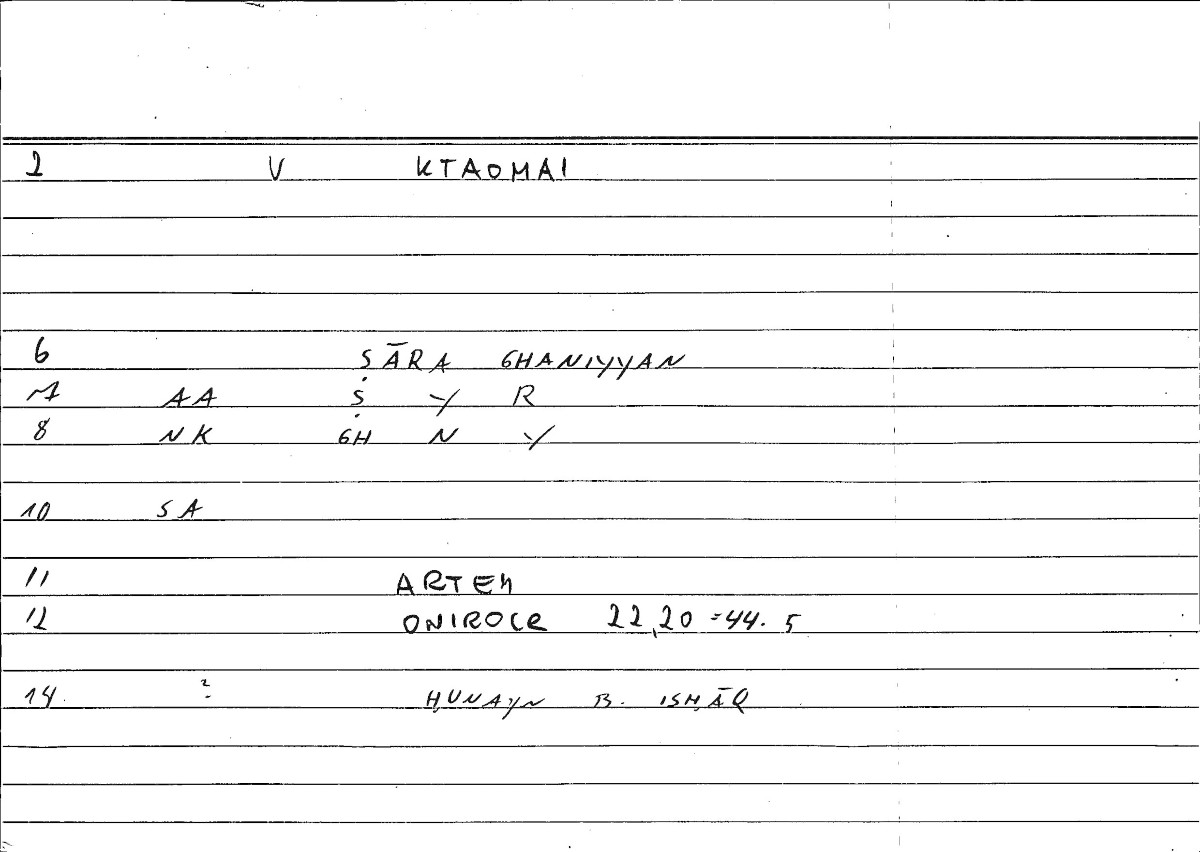 2 V KTAOMAI
6 ṢĀRA GHANIYYAN
7 AA Ṣ Y R
8 NK GH N Y
10 SA
11 ARTEM
12 ONIROCR 22,20 = 44.5
14. ? ḤUNAYN B. ISḤĀQ